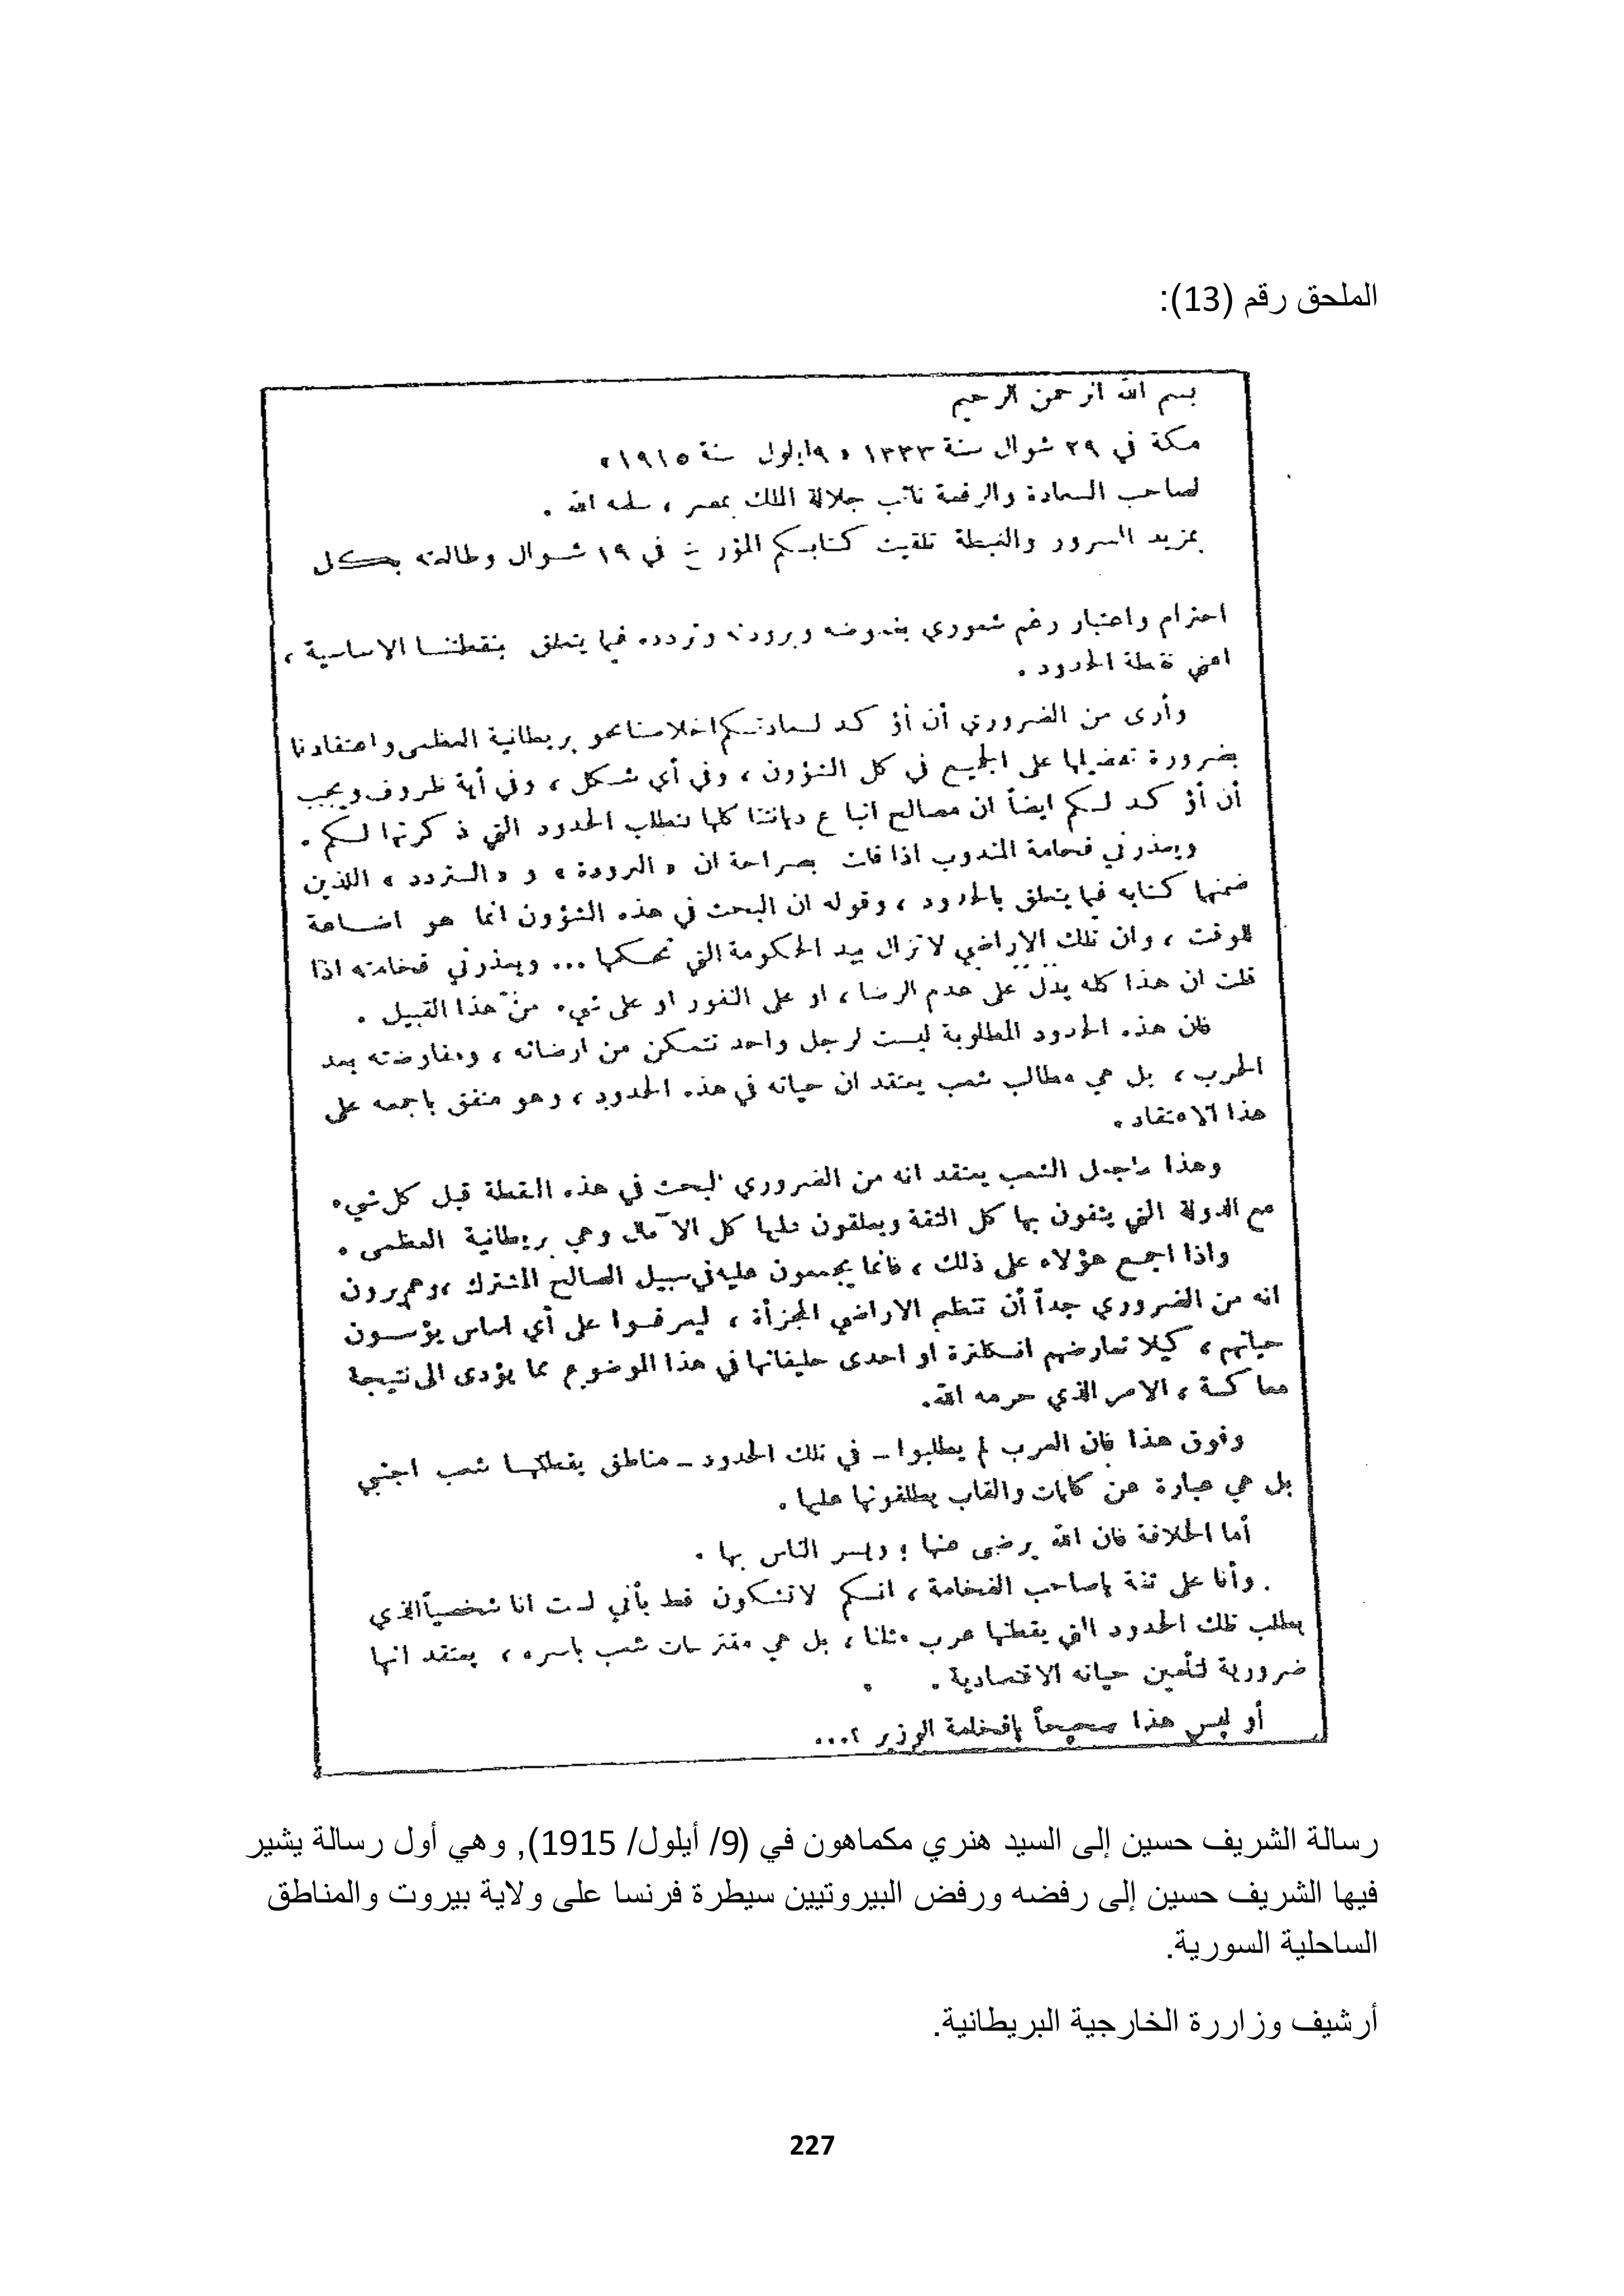 الملحق رقم (13):
بسم الله الرحمن الرحيم
مكة في ٢٩ شوال سنة ١٣٣٣ « ٩ ايلول سنة ١٩١٥ »
لصاحب السعادة والرفعة نائب جلالة الملك بمصر ، سلمه الله .
بمزيد السرور والغبطة تلقيت كتابكم المؤرخ في ١٩ شوال وطالعته بكل
احترام واعتبار رغم شعوري بغموضه وبرودته وتردده فيما يتعلق بنقطتنا الاساسية ،
اعني نقطة الحدود .
وأرى من الضروري أن أؤكد لسعادتكم اخلاصنا نحو بريطانية العظمى واعتقادنا
بضرورة تفضيلها على الجميع في كل الشؤون ، وفي أي شكل ، وفي أية ظروف ويجب
أن أؤكد لكم ايضاً ان مصالح اتباع ديانتنا كلها تتطلب الحدود التي ذكرتها لكم .
ويعذرني فخامة المندوب اذا قلت بصراحة ان « البرودة » و « التردد » اللذين
ضمنها كتابه فيما يتعلق بالحدود ، وقوله ان البحث في هذه الشؤون انما هو اضاعة
للوقت ، وان تلك الاراضي لا تزال بيد الحكومة التي تحكمها ... ويعذرني فخامته اذا
قلت ان هذا كله يدل على عدم الرضا ، او على النفور او على شيء من هذا القبيل .
فان هذه الحدود المطلوبة ليست لرجل واحد نتمكن من ارضائه ، ومفاوضته بعد
الحرب ، بل هي مطالب شعب يعتقد ان حياته في هذه الحدود ، وهو متفق باجمعه على
هذا الاعتقاد .
وهذا ماجعل الشعب يعتقد انه من الضروري البحث في هذه النقطة قبل كل شيء
مع الدولة التي يثقون بها كل الثقة ويعلقون عليها كل الآمال وهي بريطانية العظمى .
واذا اجمع هؤلاء على ذلك ، فانما يجمعون عليه في سبيل الصالح المشترك ، وهم يرون
انه من الضروري جداً أن تنظم الاراضي المجزأة ، ليعرفوا على أي اساس يؤسسون
حياتهم ، كيلا تعارضهم انكلترة او احدى حليفاتها في هذا الموضوع مما يؤدى الى نتيجة
معاكسة ، الامر الذي حرمه الله .
وفوق هذا فان العرب لم يطلبوا - في تلك الحدود - مناطق يقطنها شعب اجنبي
بل هي عبارة عن كلمات والقاب يطلقونها عليها .
أما الخلافة فان الله يرضى عنها ؛ ويسر الناس بها .
وأنا على ثقة ياصاحب الفخامة ، انكم لاتشكون قط بأني لست انا شخصياً الذي
يطلب تلك الحدود التي يقطنها عرب مثلنا ، بل هي مقترحات شعب باسره ، يعتقد انها
ضرورية لتأمين حياته الاقتصادية .
أو ليس هذا صحيحاً يافخامة الوزير ؟...
رسالة الشريف حسين إلى السيد هنري مكماهون في (9/ أيلول/ 1915), وهي أول رسالة يشير
فيها الشريف حسين إلى رفضه ورفض البيروتيين سيطرة فرنسا على ولاية بيروت والمناطق
الساحلية السورية.
أرشيف وزاررة الخارجية البريطانية.
227